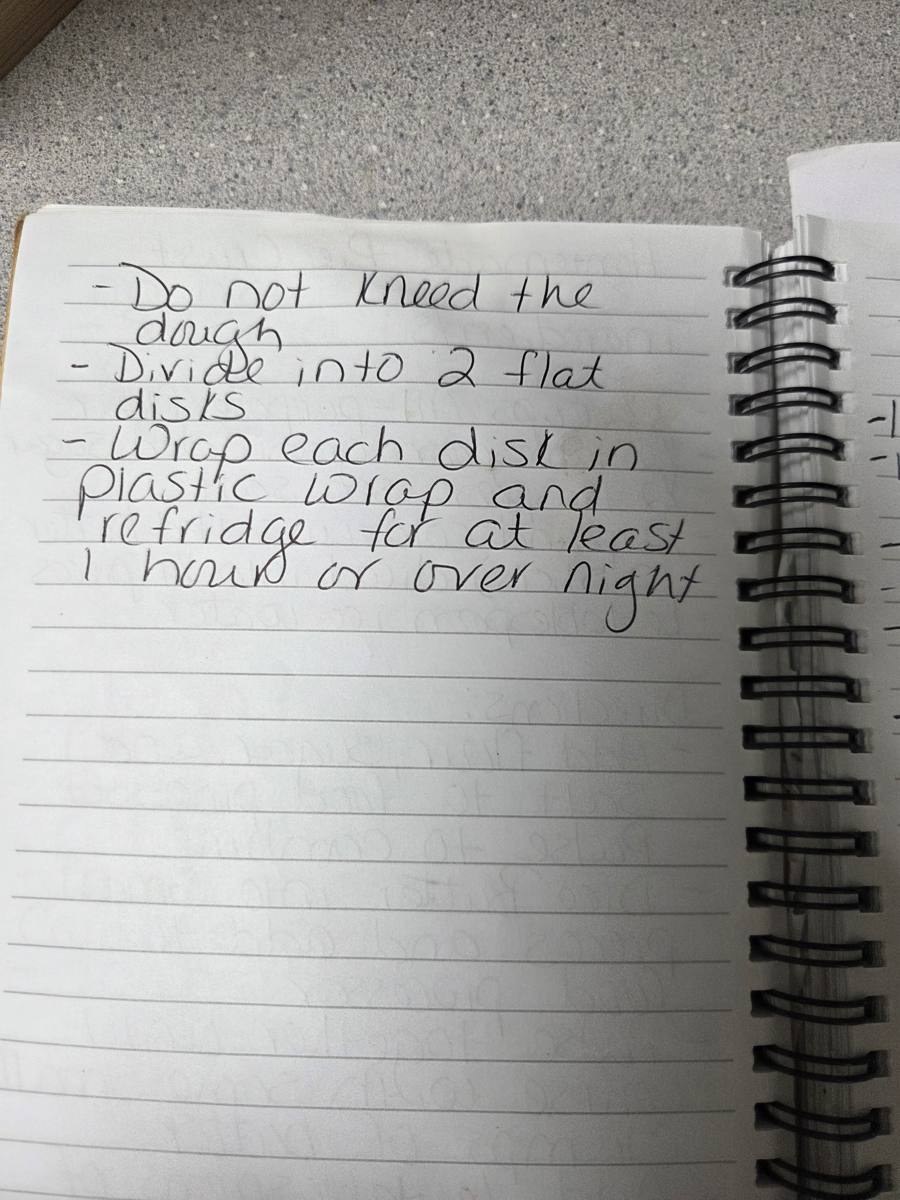 - Do not kneed the
dough
- Divide into 2 flat
disks
- Wrap each disk in
plastic wrap and
refridge for at least
1 hour or over night